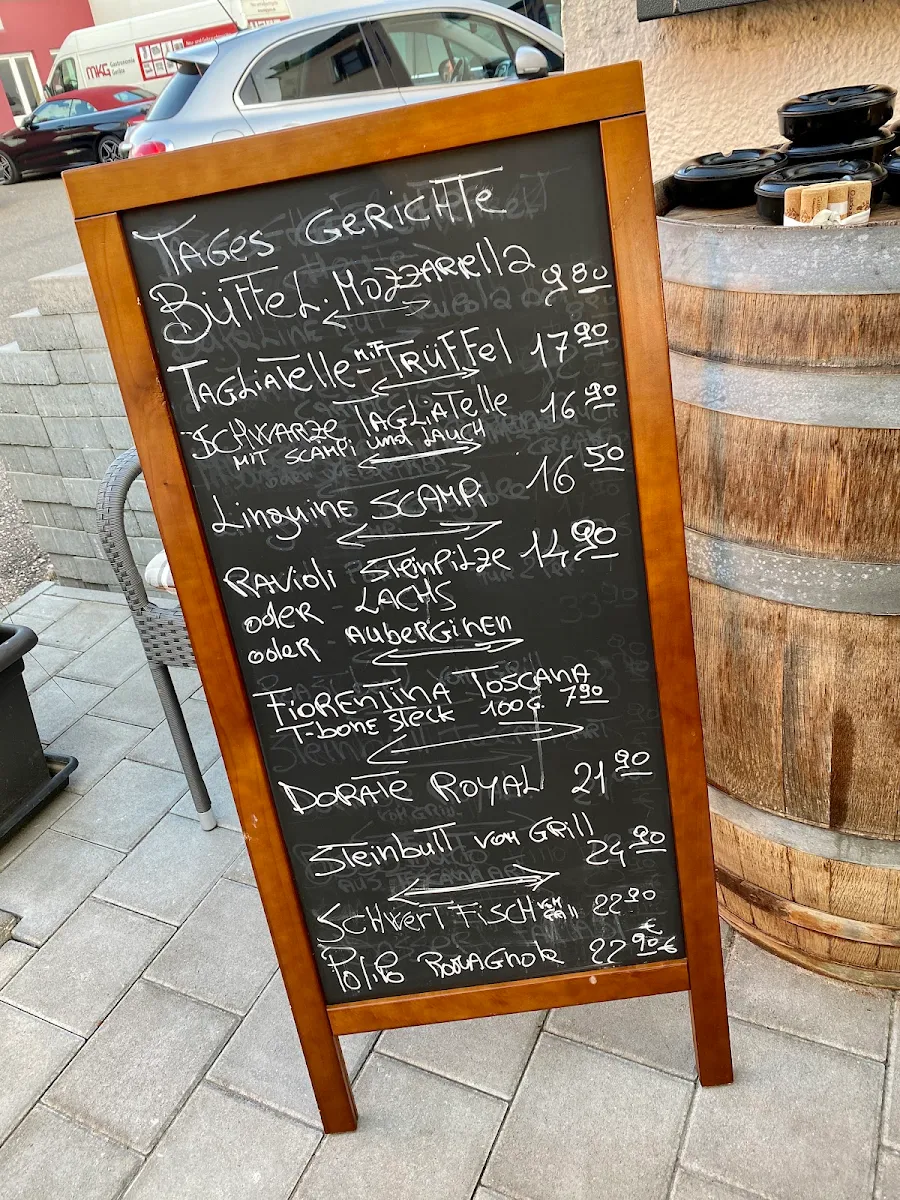 MKG Gastronomie
Geräte
TAGES GERICHTE
BÜFFEL. MOZZARELLA 9 80
TAGLIATELLE MIT TRÜFFEL 17 90
SCHWARZE TAGLIATELLE 16 90
MIT SCAMPI UND LAUCH
Linguine SCAMPI 16 50
RAVIOLI STEINPILZE 14 90
oder LACHS
oder AUBERGINEN
FIORENTINA TOSCANA
T-bone steck 100G. 7 90
DORATE ROYAL 21 90
Steinbutt vom GRill
24 90
SCHWERT FISCH vom Grill 22 90
€
PoliPo ROMAGNOLE 22 90 €